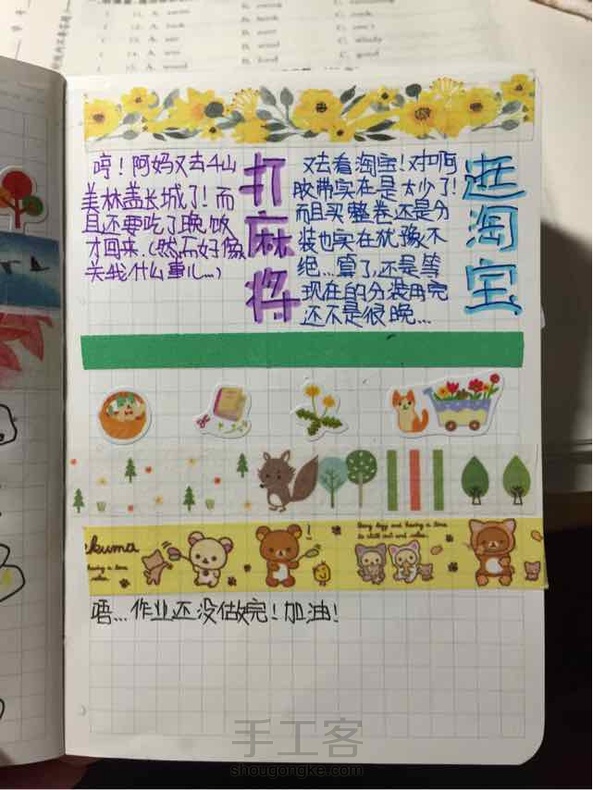 哼！阿妈又去山
美林盖长城了！而
且还要吃了晚饭
才回来.(然而好像
关我什么事儿...)
打麻将
又去看淘宝！对啊
胶带实在是太少了！
而且买整卷还是分
装也实在犹豫不
绝...算了,还是等
现在的分装用完
还不是很晚...
逛淘宝
ekuma
having a time
and having a time
唔...作业还没做完！加油！
手工客
shougongke.com